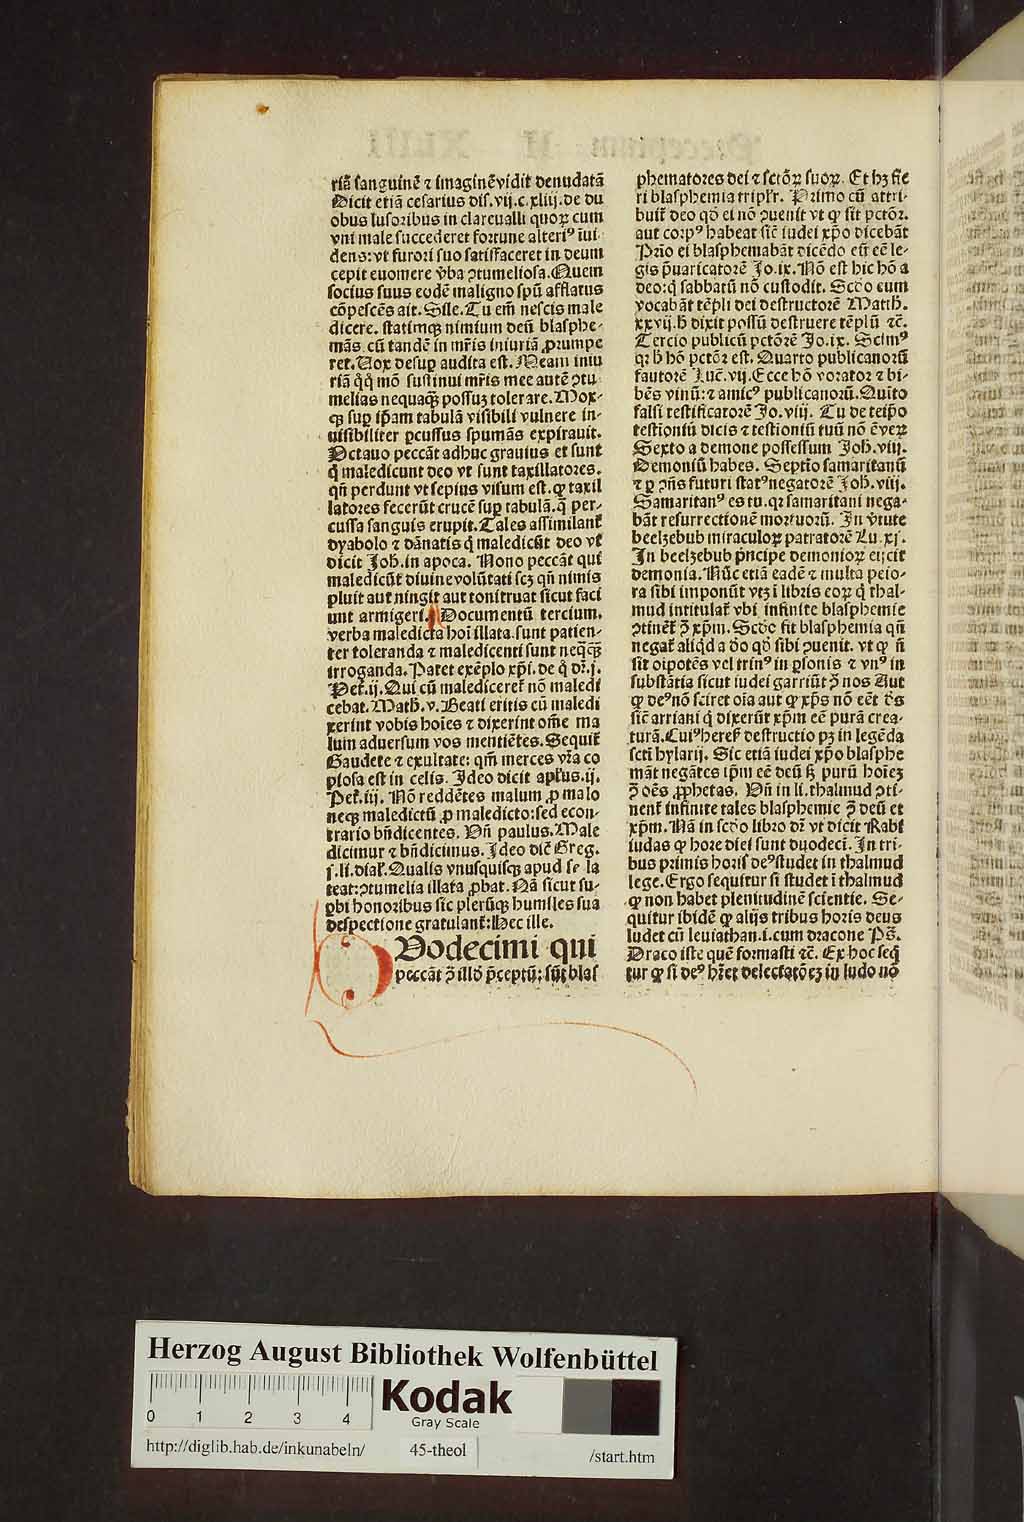 riā sanguinē ⁊ imaginē vidit denudatā
Dicit etiā cesarius dis.vij.c.xliij.de du
obus lusoribus in clareualli quoꝝ cum
vni male succederet fortune alteriꝰ īui
dens: vt furori suo satisfaceret in deum
cepit euomere v̄ba ꝯtumeliosa. Quem
socius suus eodē maligno spū afflatus
cōpescēs ait. Sile. Tu em̄ nescis male
dicere. statimqꝫ nimium deū blasphe-
mās. cū tandē in mr̄is iniuriā ꝓrumpe
ret. Uox desuꝑ audita est. Meam iniu
riā q̊q̊ mō sustinui mr̄is mee autē ꝯtu
melias nequaqꝫ possuꝫ tolerare. Mox-
qꝫ suꝑ ip̄am tabulā visibili vulnere in-
uisibiliter ꝑcussus spumās expirauit.
Octauo peccāt adhuc grauius et sunt
q̄ maledicunt deo vt sunt taxillatores.
qn̄ perdunt vt sepius visum est. ꝙ taxil
latores fecerūt crucē suꝑ tabulā. q̄ per-
cussa sanguis erupit. Tales assimilant̄
dyabolo ⁊ dānatis q̄ maledicūt deo vt
dicit Joh̄. in apoca. Nono peccāt qui
maledicūt diuine volūtati scꝫ qn̄ nimis
pluit aut ningit aut tonitruat sicut faci
unt armigeri. Documentū tercium.
verba maledicta hoī illata. sunt patien-
ter toleranda ⁊ maledicenti sunt neq̄qꝫ
irroganda. Patet exēplo xp̄i. de q̊ dr̄.j.
Pet̄.ij. Qui cū malediceret̄ nō maledi
cebat. Math̄.v. Beati eritis cū maledi
xerint vobis hoīes ⁊ dixerint om̄e ma
lum aduersum vos mentiētes. Sequit̄
Gaudete ⁊ exultate: qm̄ merces vr̄a co
piosa est in celis. Ideo dicit apl̄us.ij.
Pet̄.iij. Nō reddētes malum ꝓ malo
necqꝫ maledictū ꝓ maledicto: sed econ-
trario bn̄dicentes. Vn̄ paulus. Male
dicimur ⁊ bn̄dicimus. Ideo dic̄ Greg.
j.li.dial̄. Qualis vnusquisqꝫ apud se la
teat: ꝯtumelia illata ꝓbat. Nā sicut su-
ꝑbi honoribus sic plerūqꝫ humiles sua
despectione gratulant̄: Hec ille.
Dodecimi qui
peccāt ꝯ̄ illd̄ p̄ceptū: sūt blas
phematores dei ⁊ sctōꝝ suoꝝ. Et hꝫ fie
ri blasphemia triplr̄. Primo cū attri-
buit̄ deo qd̄ ei nō ꝯuenit vt ꝙ sit pctōr.
aut corpꝰ habeat sic̄ iudei xp̄o dicebāt
Prīo ei blasphemabāt dicēdo eū eē le-
gis p̄uaricatorē Jo.ix. Nō est hic hō a
deo: q̄ sabbatū nō custodit. Scd̄o eum
vocabāt tēpli dei destructorē Math̄.
xxvij. h̄ dixit possū destruere tēplū ⁊c̄.
Tercio publicū pctōrē Jo.ix. Scimꝰ
qꝛ h̄ hō pctōr est. Quarto publicanorū
fautorē Luc̄.vij. Ecce hō vorator ⁊ bi-
bēs vinū: ⁊ amicꝰ publicanorū. Quīto
falsi testificatorē Jo.viij. Tu de teip̄o
testioniū dicis ⁊ testioniū tuū nō ē veꝝ
Sexto a demone possessum Joh̄.viij.
Demoniū habes. Septīo samaritanū
⁊ ꝑ ꝯn̄s futuri statꝰ negatorē Joh̄.viij.
Samaritanꝰ es tu. qꝛ samaritani nega-
bāt resurrectionē mortuorū. In v̄tute
beelzebub miraculoꝝ patratorē Lu.xj.
In beelzebub p̄ncipe demonioꝝ eijcit
demonia. Nūc etiā eadē ⁊ multa peio-
ra sibi imponūt vtꝫ ī libris eoꝝ q̄ thal-
mud intitulat̄ vbi infinite blasphemie
ꝯtinēt̄ ꝯ̄ xp̄m. Scd̄o fit blasphemia qn̄
negat̄ aliqd̄ a d̄o qd̄ sibi ꝯuenit. vt ꝙ n̄
sit oīpotēs vel trinꝰ in ꝑsonis ⁊ vnꝰ in
substātia sicut iudei garriūt ꝯ̄ nos Aut
ꝙ deꝰ nō sciret oīa aut ꝙ xp̄s nō eēt dꝰs
sic̄ arriani q̄ dixerūt xp̄m eē purā crea-
turā. Cuiꝰ heres̄ destructio pꝫ in legēda
scti hylarij. Sic etiā iudei xp̄o blasphe
māt negātes ip̄m eē deū sꝫ purū hoīeꝫ
ꝯ̄ oēs ꝓphetas. Vn̄ in li. thalmud ꝯti-
nent̄ infinite tales blasphemie ꝯ̄ deū et
xp̄m. Nā in scd̄o libro dr̄ vt dicit Rabi
iudas ꝙ hore diei sunt duodecī. In tri-
bus primis horis deꝰ studet in thalmud
lege. Ergo sequitur si studet ī thalmud
ꝙ non habet plenitudinē scientie. Se-
quitur ibidē ꝙ alijs tribus horis deus
ludet cū leuiathan .i. cum dracone Ps̄.
Draco iste quē formasti ⁊c̄. Ex hoc seq̄
tur ꝙ si deꝰ hr̄et delectatōeꝫ in ludo nō
Herzog August Bibliothek Wolfenbüttel
0 1 2 3 4
Kodak
Gray Scale
http://diglib.hab.de/inkunabeln/ 45-theol /start.htm